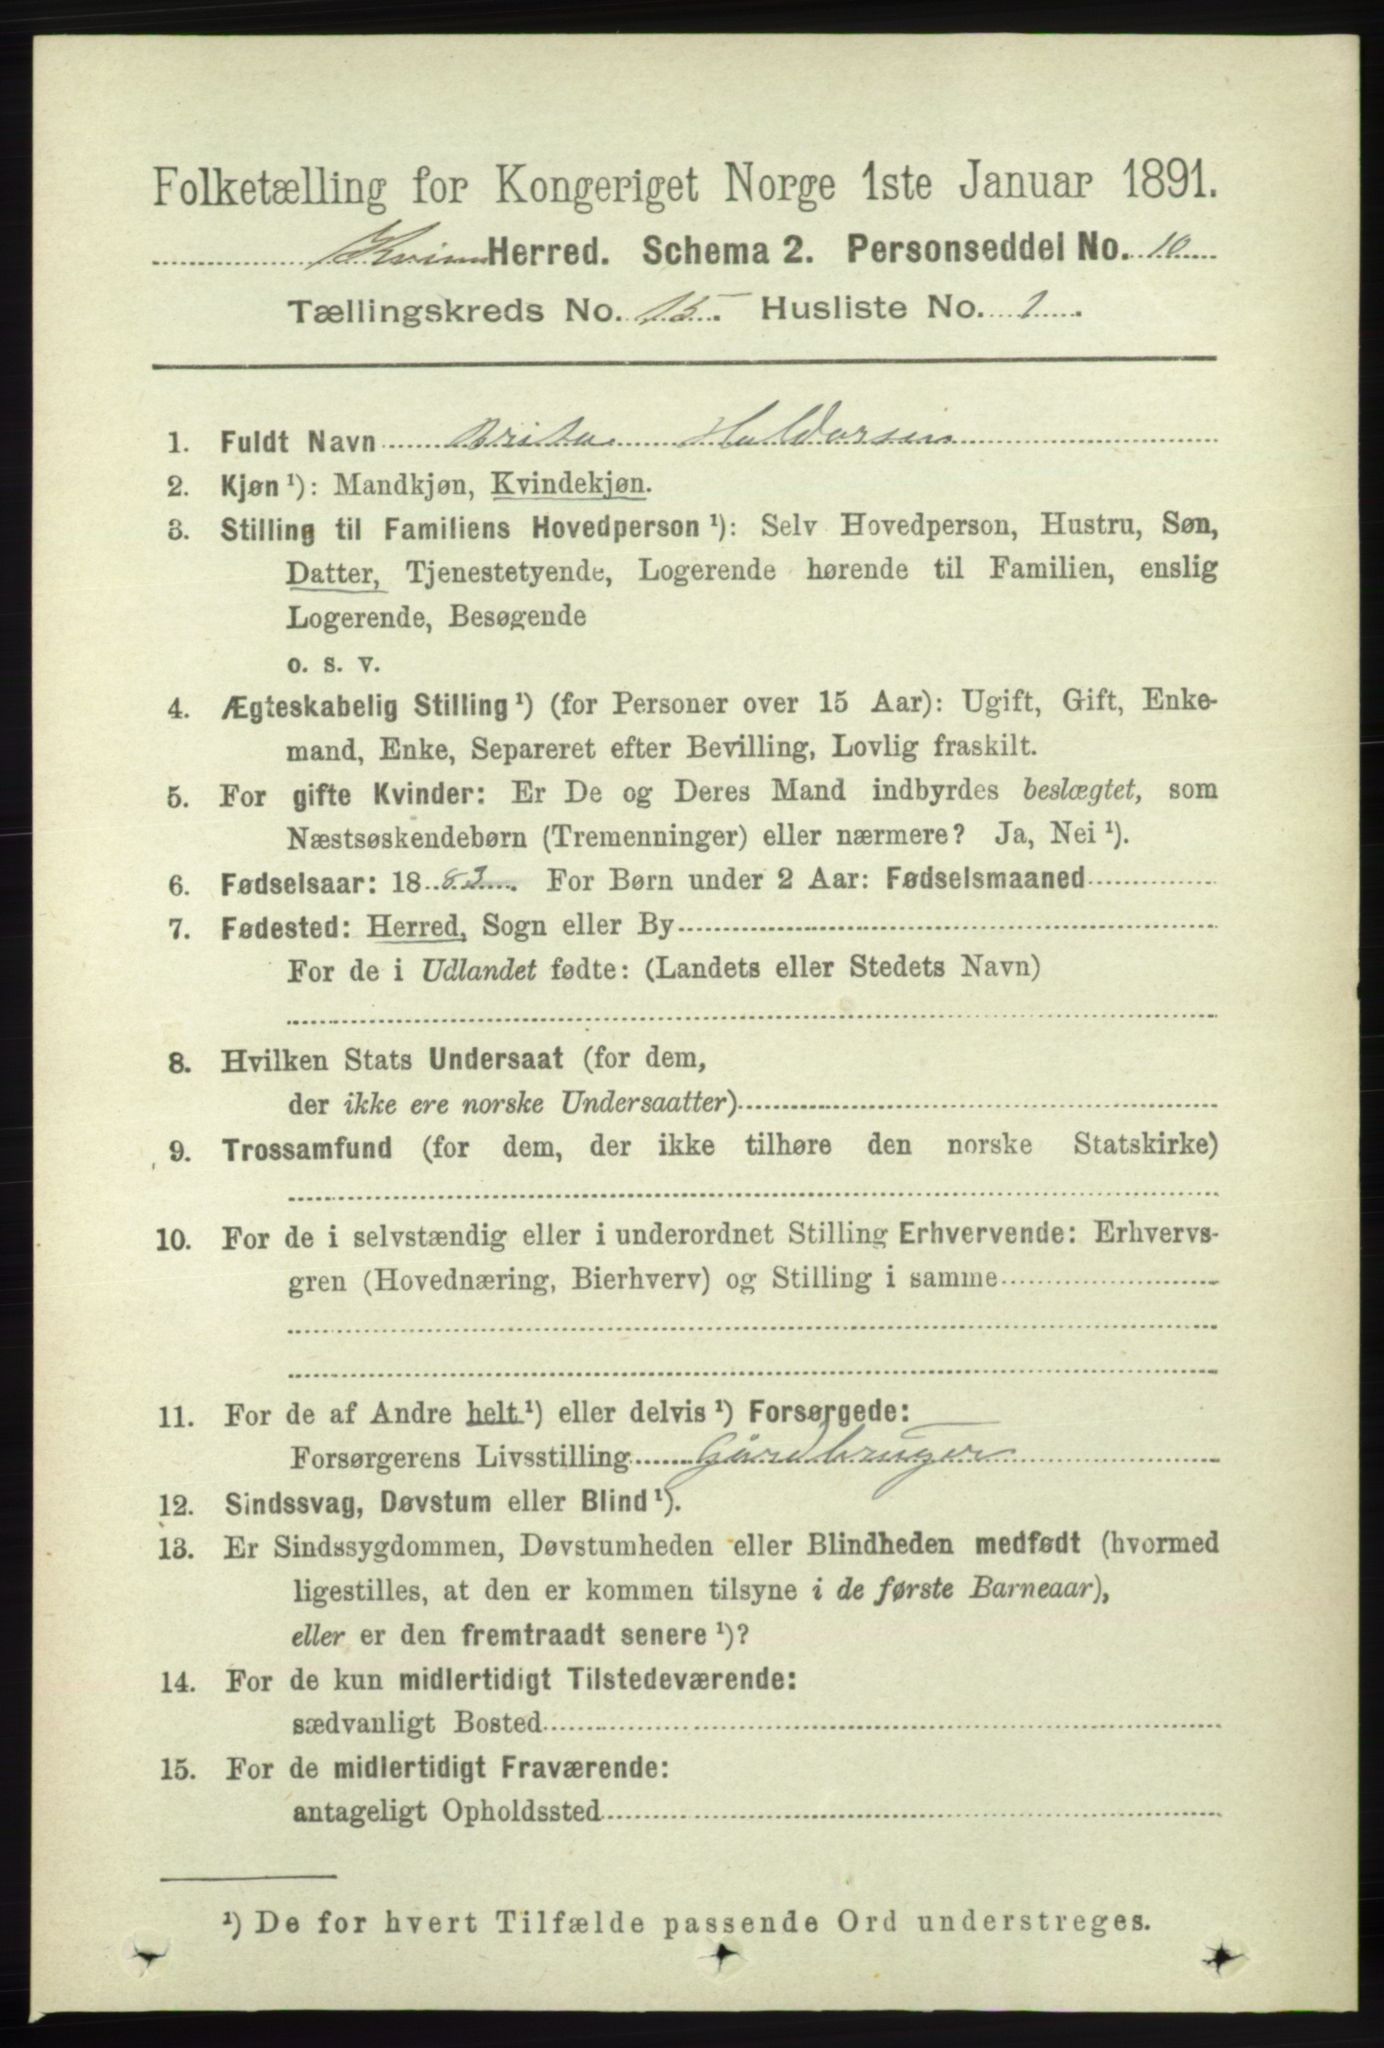 Folketælling for Kongeriget Norge 1ste Januar 1891.
Herred. Schema 2. Personseddel No. 10
Tællingskreds No. 15. Husliste No. 1.
1. Fuldt Navn Brita Haldorsen
2. Kjøn ¹): Mandkjøn, Kvindekjøn.
3. Stilling til Familiens Hovedperson ¹): Selv Hovedperson, Hustru, Søn,
Datter, Tjenestetyende, Logerende hørende til Familien, enslig
Logerende, Besøgende
o. s. v.
4. Ægteskabelig Stilling ¹) (for Personer over 15 Aar): Ugift, Gift, Enke-
mand, Enke, Separeret efter Bevilling, Lovlig fraskilt.
5. For gifte Kvinder: Er De og Deres Mand indbyrdes beslægtet, som
Næstsøskendebørn (Tremenninger) eller nærmere? Ja, Nei ¹).
6. Fødselsaar: 1883. For Børn under 2 Aar: Fødselsmaaned
7. Fødested: Herred, Sogn eller By
For de i Udlandet fødte: (Landets eller Stedets Navn)
8. Hvilken Stats Undersaat (for dem,
der ikke ere norske Undersaatter)
9. Trossamfund (for dem, der ikke tilhøre den norske Statskirke)
10. For de i selvstændig eller i underordnet Stilling Erhvervende: Erhvervs-
gren (Hovednæring, Bierhverv) og Stilling i samme
11. For de af Andre helt ¹) eller delvis ¹) Forsørgede:
Forsørgerens Livsstilling Gårdbruger
12. Sindssvag, Døvstum eller Blind ¹).
13. Er Sindssygdommen, Døvstumheden eller Blindheden medfødt (hvormed
ligestilles, at den er kommen tilsyne i de første Barneaar),
eller er den fremtraadt senere ¹)?
14. For de kun midlertidigt Tilstedeværende:
sædvanligt Bosted
15. For de midlertidigt Fraværende:
antageligt Opholdssted
¹) De for hvert Tilfælde passende Ord understreges.